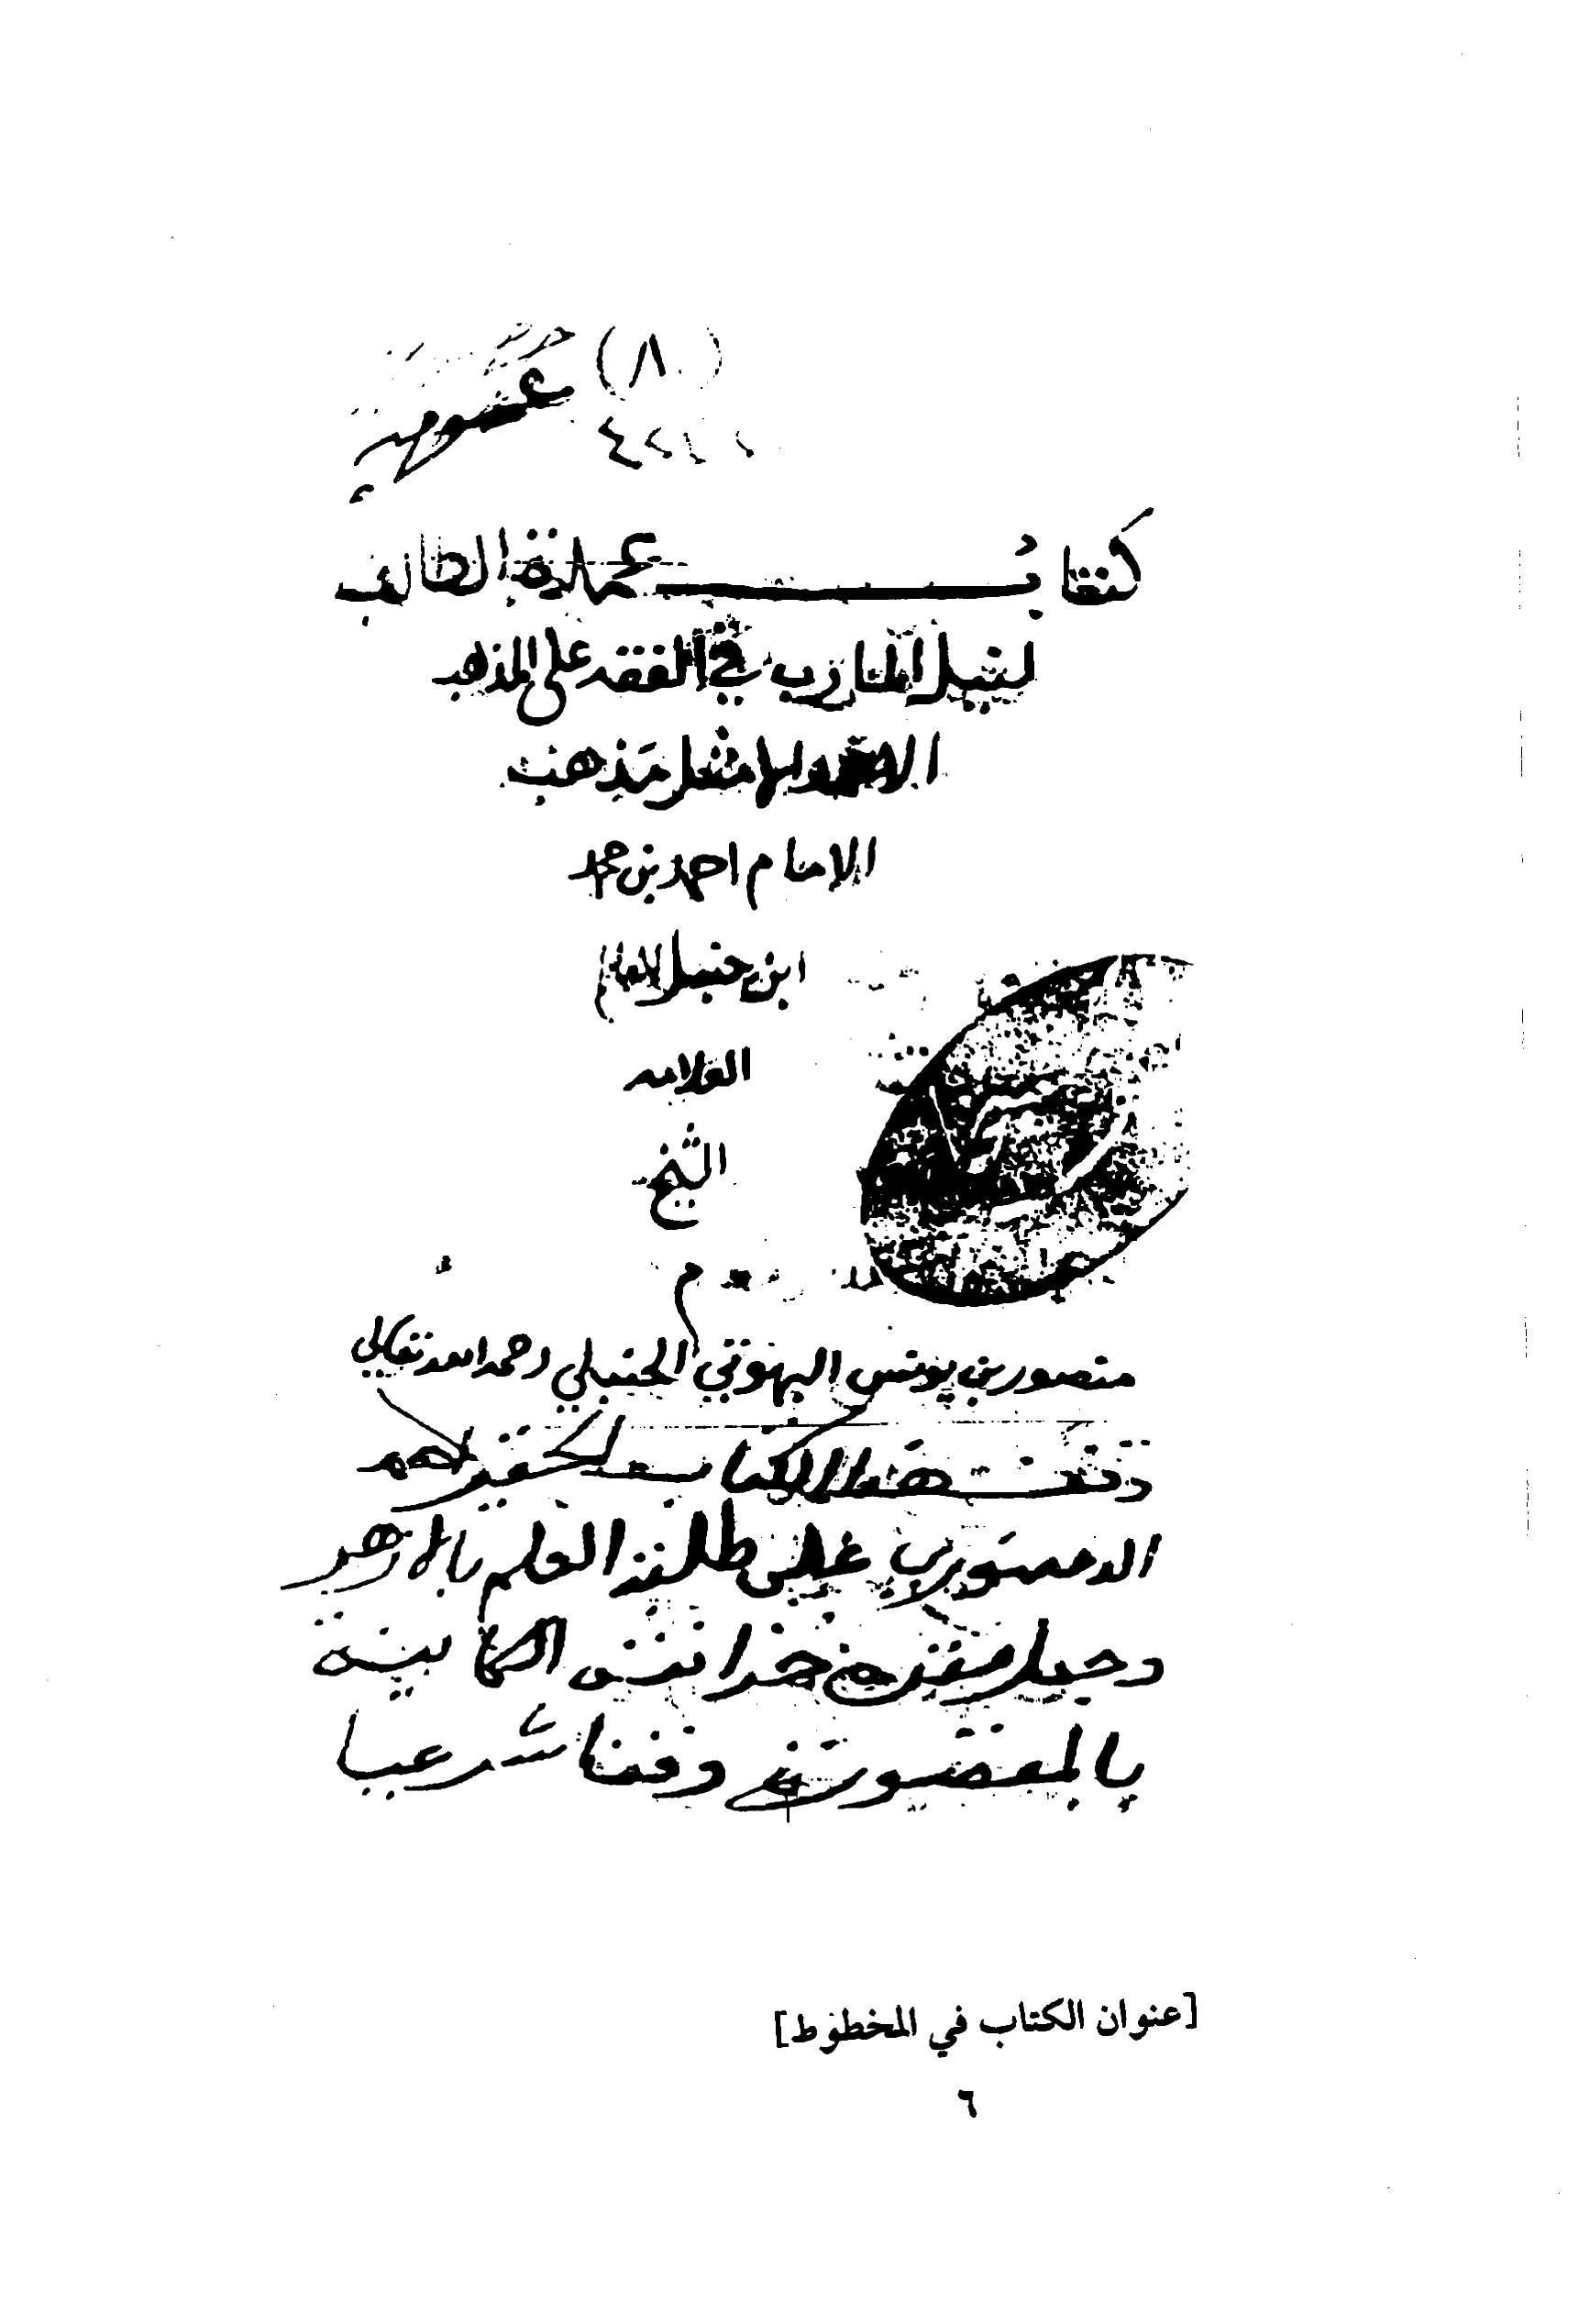 (٨)
عمومية
كتاب عمدة الطالب
لنيل المآرب في الفقه على المذهب
الامثل مذهب
الامام احمد بن محمد
ابن حنبل للامام
العلامه
الشيخ
منصور بن يونس البهوتي الحنبلي رحمه الله تعالى
وقف هذا الكتاب الحقير احمد
الدمنهوري على طلبة العلم بالازهر
وجعل مقره خزانته الكاينة
بالمقصورة وقفا شرعيا
[عنوان الكتاب في المخطوط]
٦